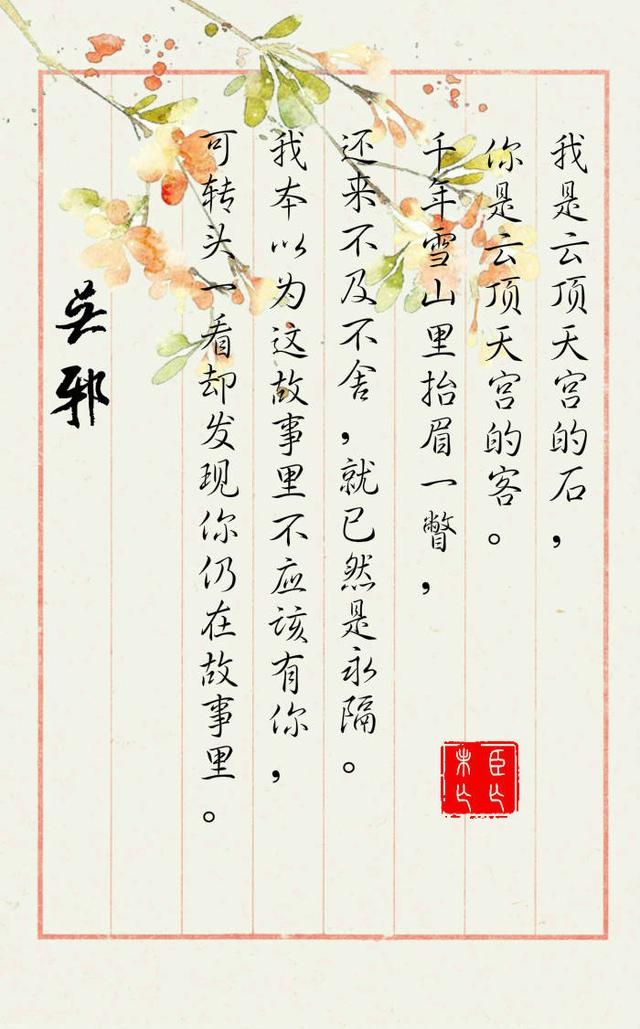 我是云顶天宫的石，
你是云顶天宫的客。
千年雪山里抬眉一瞥，
还来不及不舍，就已然是永隔。
我本以为这故事里不应该有你，
可转头一看却发现你仍在故事里。
吴邪